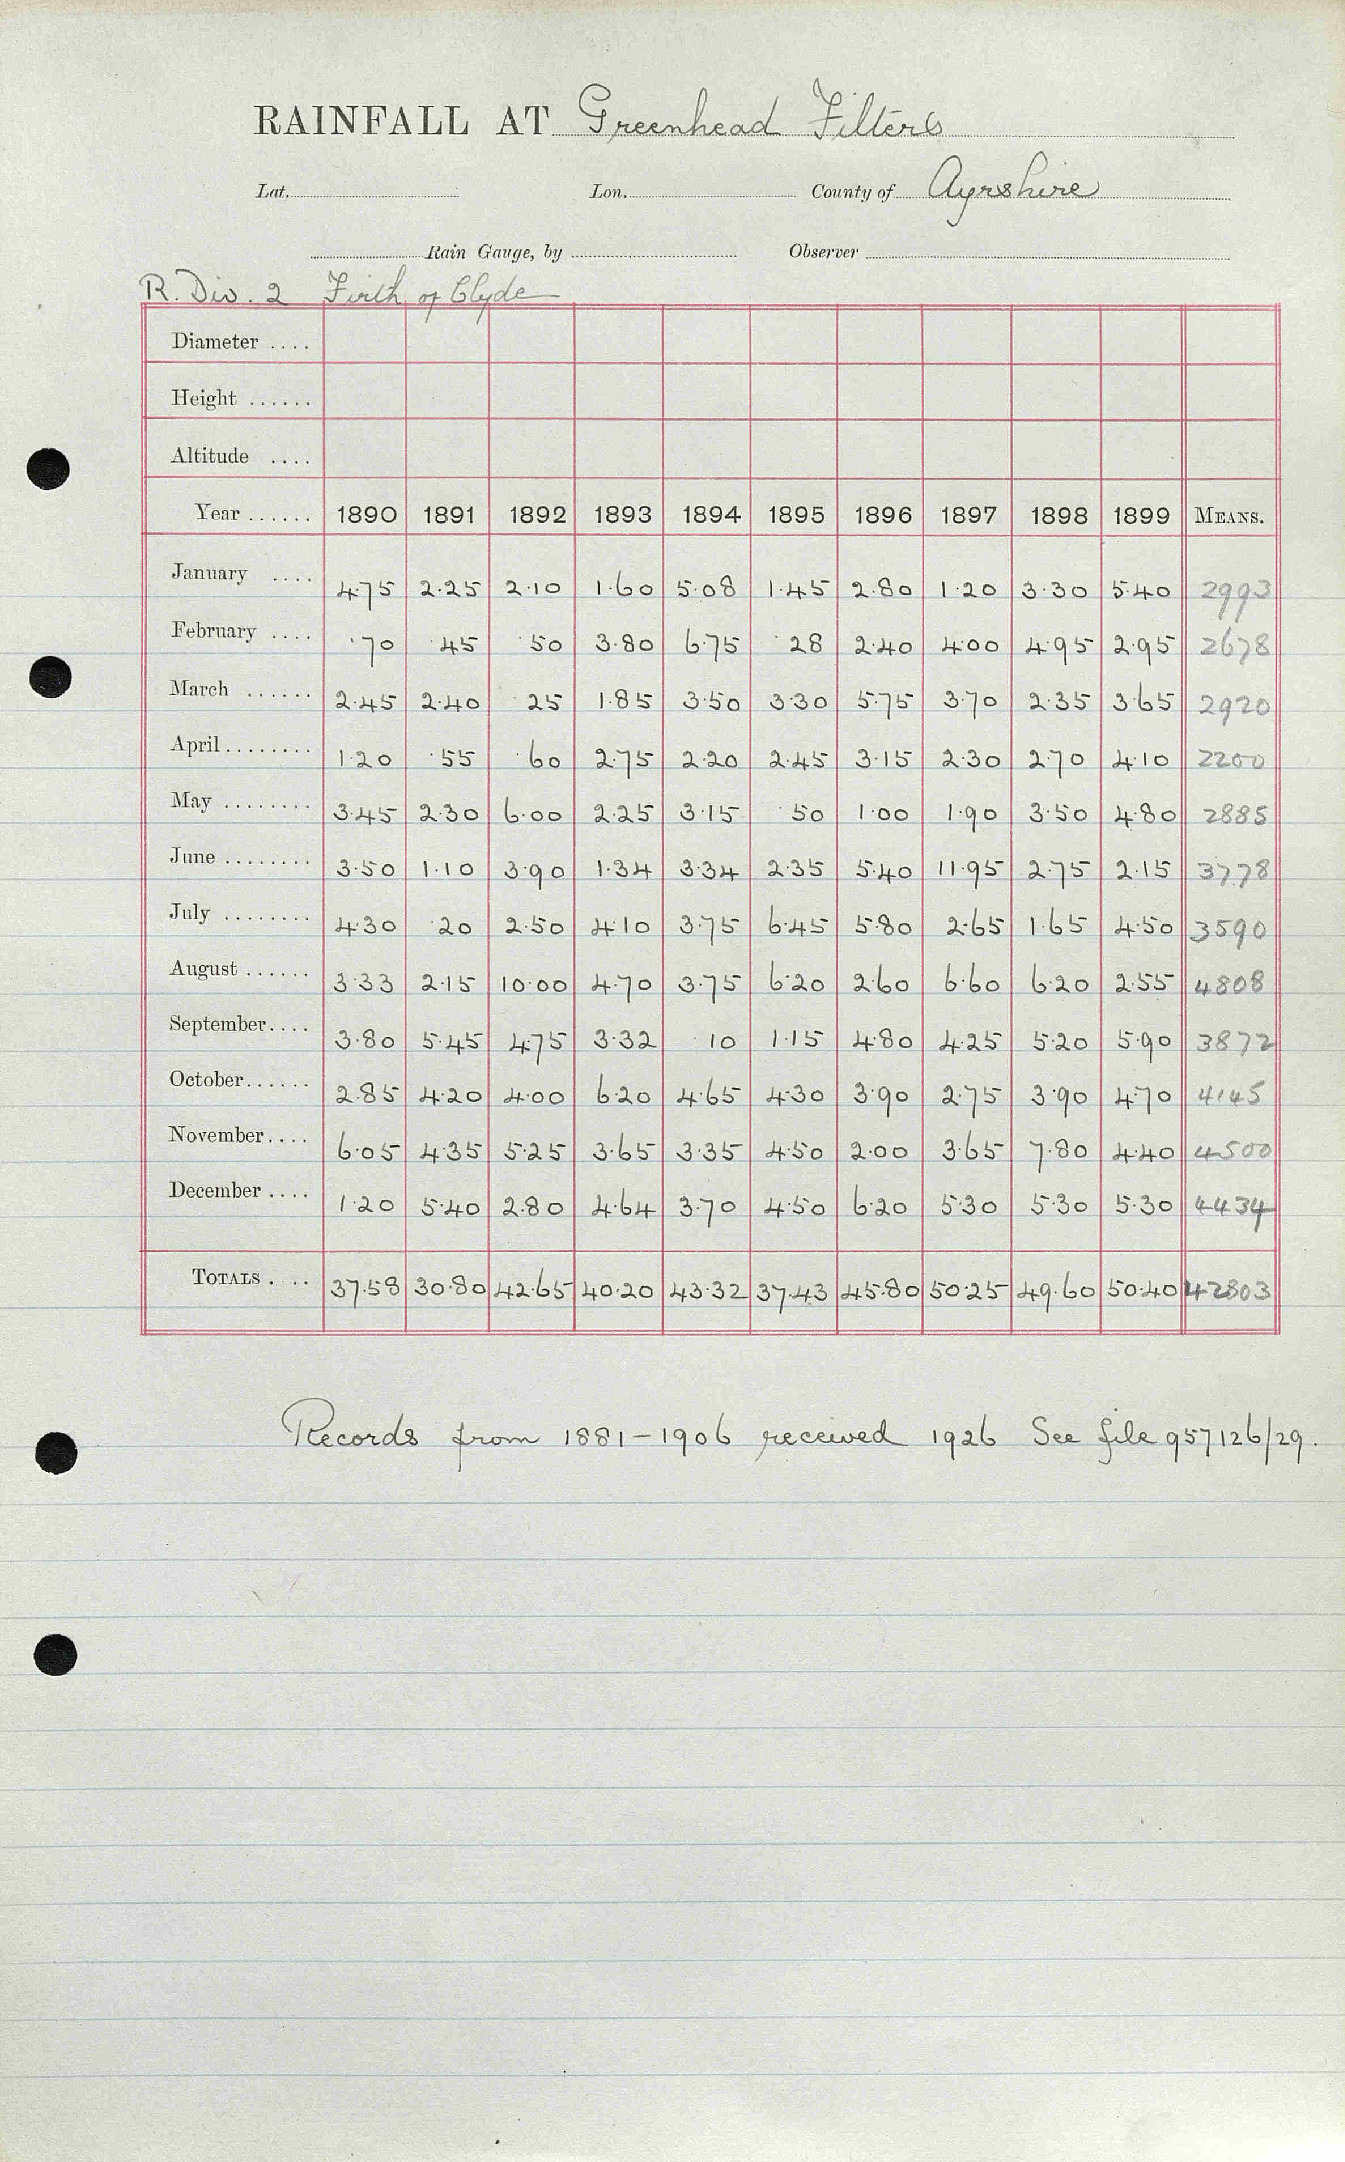 RAINFALL AT Greenhead Filters
Lat. Lon. County of Ayrshire
Rain Gauge, by Observer
R. Div. 2 Firth of Clyde
Diameter ....
Height ......
Altitude ....
Year ...... 1890 1891 1892 1893 1894 1895 1896 1897 1898 1899 MEANS.
January .... 4.75 2.25 2.10 1.60 5.08 1.45 2.80 1.20 3.30 5.40 2993
February .... .70 .45 .50 3.80 6.75 .28 2.40 4.00 4.95 2.95 2678
March ...... 2.45 2.40 .25 1.85 3.50 3.30 5.75 3.70 2.35 3.65 2920
April ........ 1.20 .55 .60 2.75 2.20 2.45 3.15 2.30 2.70 4.10 2200
May ........ 3.45 2.30 6.00 2.25 3.15 .50 1.00 1.90 3.50 4.80 2885
June ........ 3.50 1.10 3.90 1.34 3.34 2.35 5.40 11.95 2.75 2.15 3778
July ........ 4.30 .20 2.50 4.10 3.75 6.45 5.80 2.65 1.65 4.50 3590
August ...... 3.33 2.15 10.00 4.70 3.75 6.20 2.60 6.60 6.20 2.55 4808
September.... 3.80 5.45 4.75 3.32 .10 1.15 4.80 4.25 5.20 5.90 3872
October...... 2.85 4.20 4.00 6.20 4.65 4.30 3.90 2.75 3.90 4.70 4145
November.... 6.05 4.35 5.25 3.65 3.35 4.50 2.00 3.65 7.80 4.40 4500
December .... 1.20 5.40 2.80 4.64 3.70 4.50 6.20 5.30 5.30 5.30 4434
TOTALS .... 37.58 30.80 42.65 40.20 43.32 37.43 45.80 50.25 49.60 50.40 42803
Records from 1881-1906 received 1926 See file 957126/29.